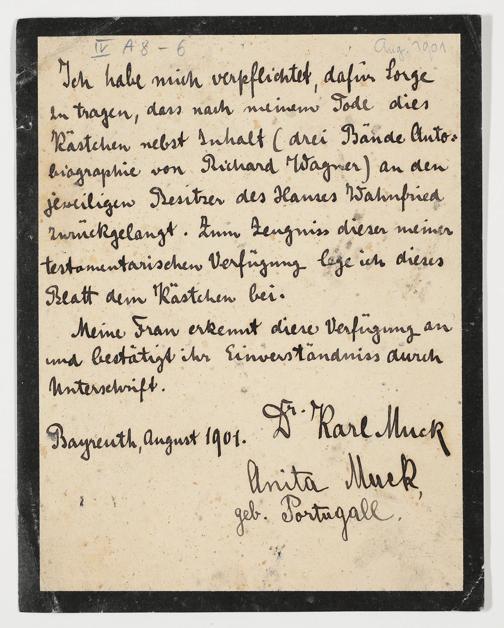 IV A 8 - 6
Aug. 1901
Ich habe mich verpflichtet, dafür Sorge
zu tragen, dass nach meinem Tode dies
Kästchen nebst Inhalt (drei Bände Auto=
biographie von Richard Wagner) an den
jeweiligen Besitzer des Hauses Wahnfried
zurückgelangt. Zum Zeugniss dieser meiner
testamentarischen Verfügung lege ich dieses
Blatt dem Kästchen bei.
Meine Frau erkennt diese Verfügung an
und bestätigt ihr Einverständniss durch
Unterschrift.
Bayreuth, August 1901.
Dr. Karl Muck
Anita Muck,
geb. Portugall.